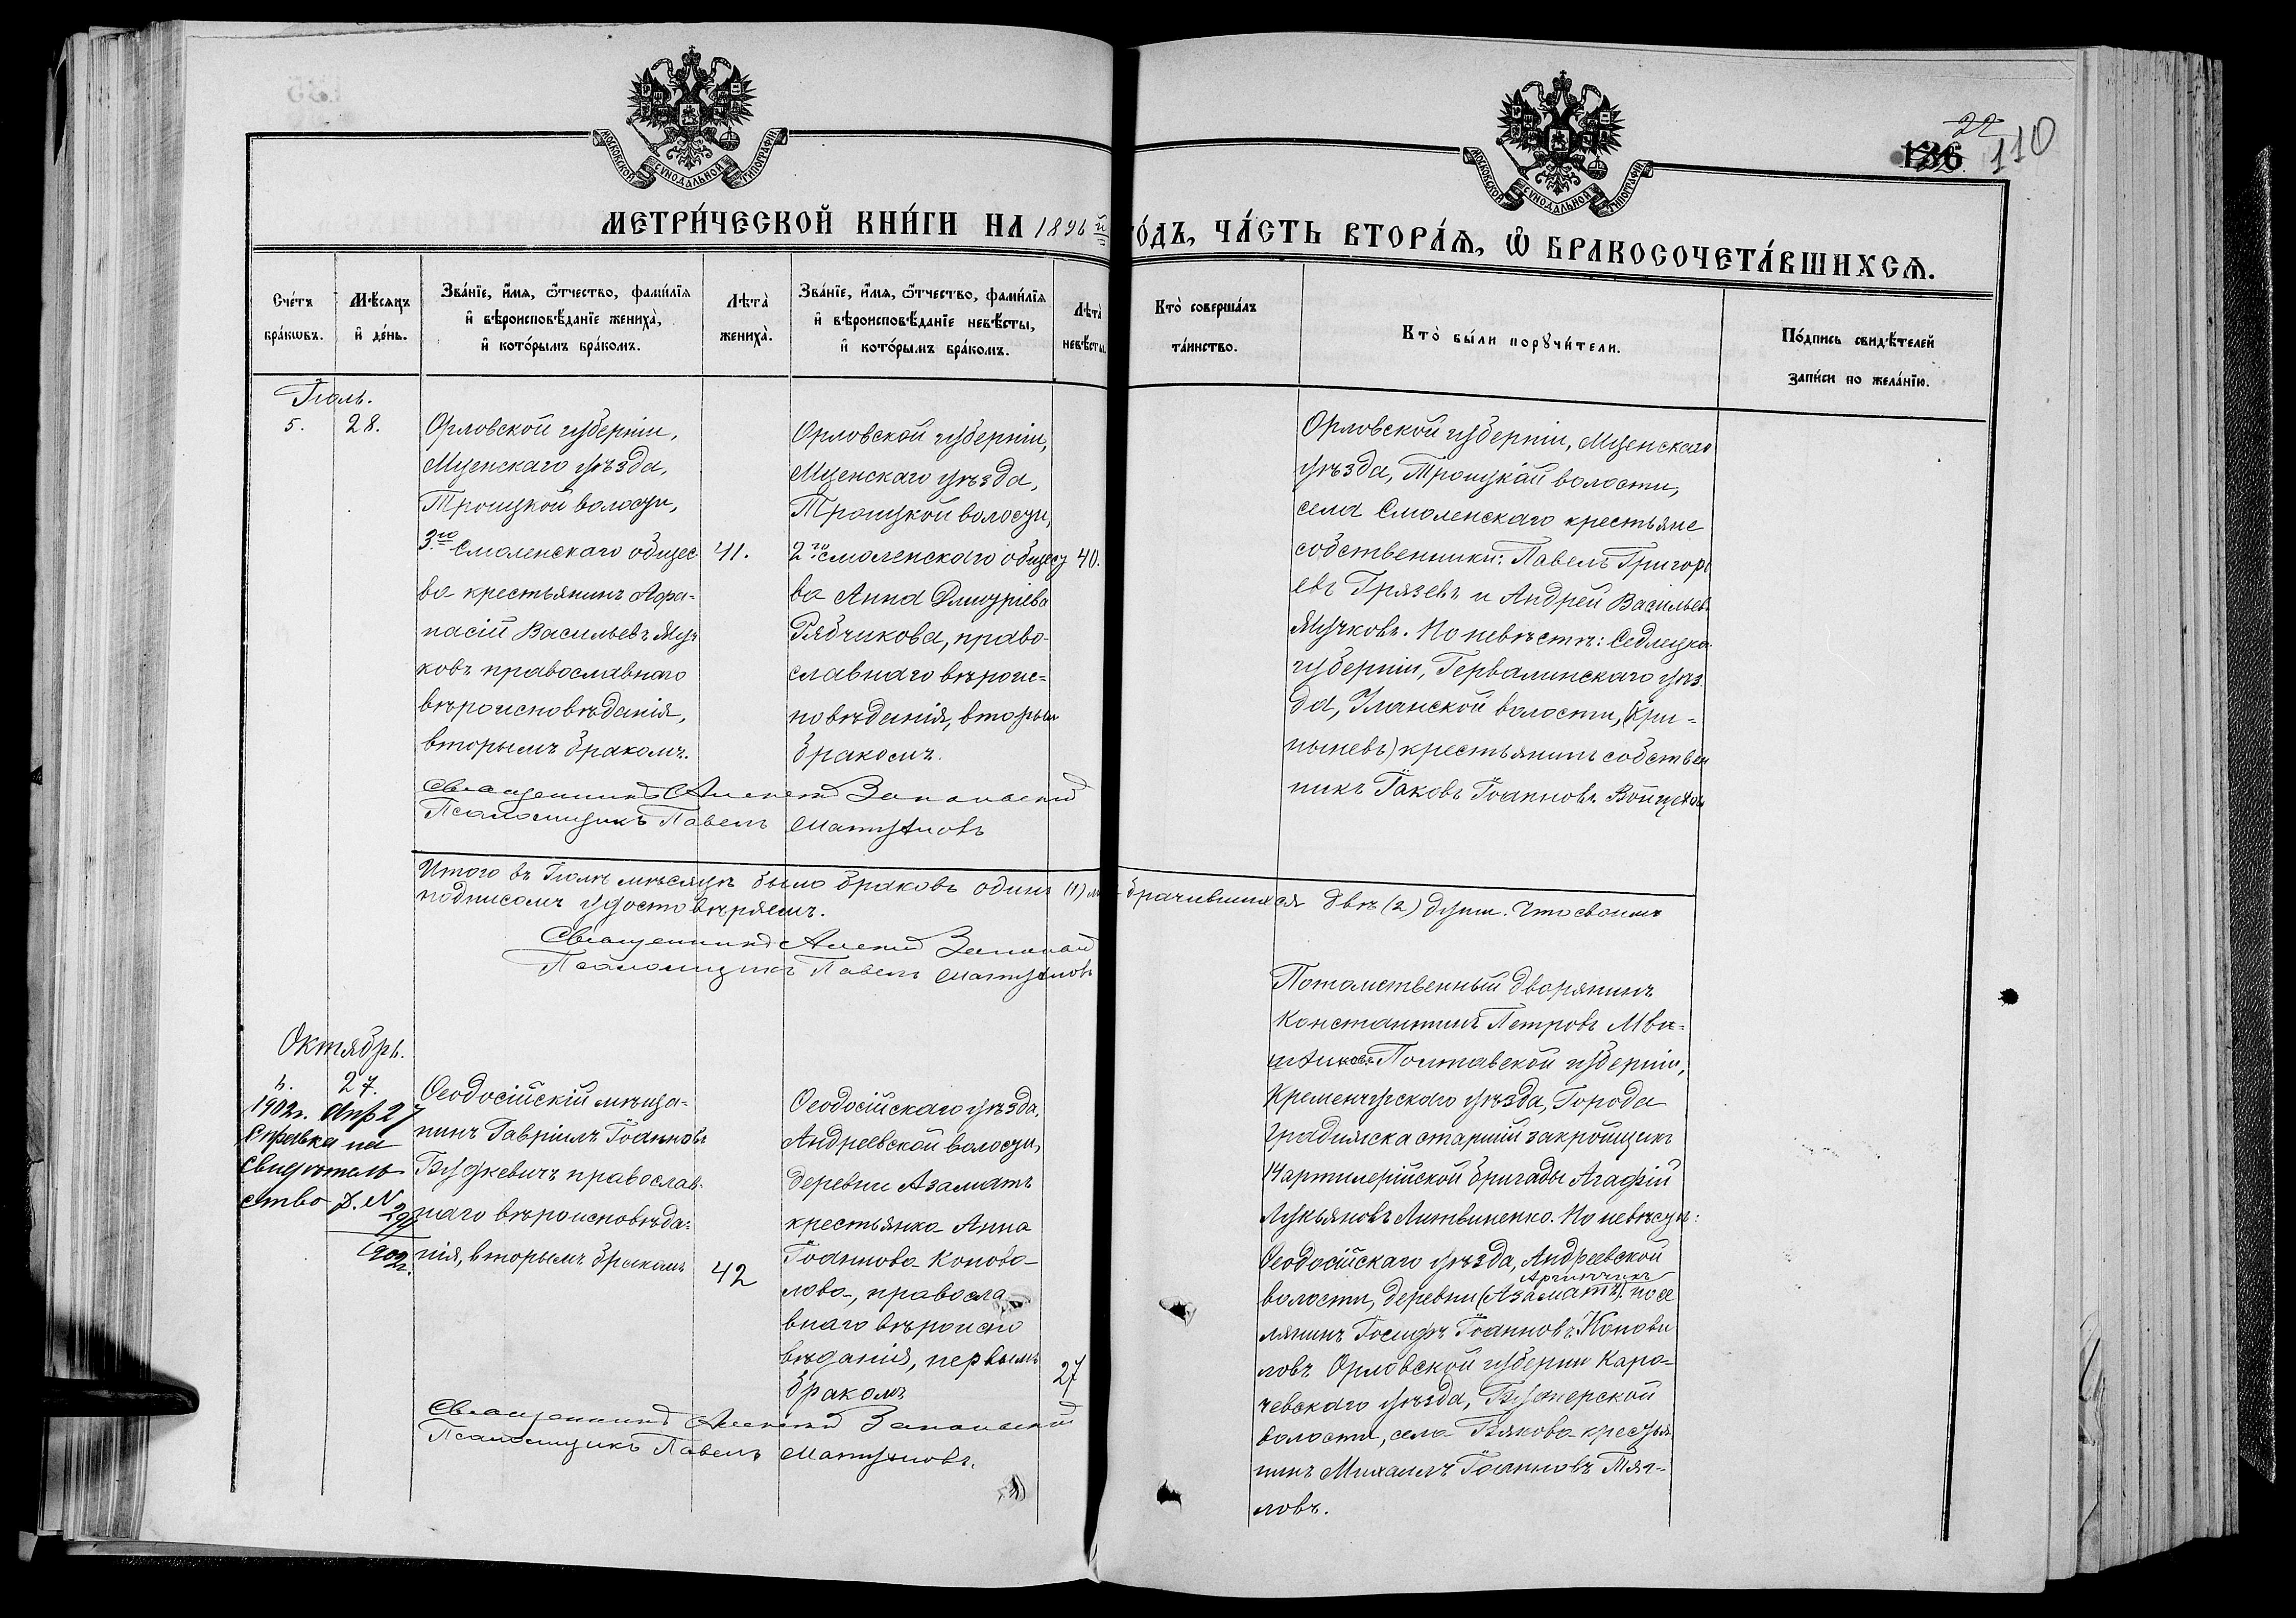 22
136
110
МОСКОВСКОЙ СѴНОДАЛЬНОЙ ТИПОГРАФІИ
МОСКОВСКОЙ СѴНОДАЛЬНОЙ ТИПОГРАФІИ
МЕТРИ́ЧЕСКОЙ КНИ́ГИ НА 1896 й
ГО́ДЪ, ЧА́СТЬ ВТОРА́Ѧ, Ѡ҆ БРАКОСОЧЕТА́ВШИХСѦ.
Сче́тъ бра́кѡвъ.
Мѣ́сяцъ и҆ де́нь.
Зва́нїе, и҆́мѧ, ѻ҆́тчество, фами́лїѧ
и҆ вѣроисповѣ́данїе жениха̀,
и҆ кото́рымъ бра́комъ.
Лѣта̀ жениха̀.
Зва́нїе, и҆́мѧ, ѻ҆́тчество, фами́лїѧ
и҆ вѣроисповѣ́данїе невѣ́сты,
и҆ кото́рымъ бра́комъ.
Лѣта̀ невѣ́сты.
Кто̀ соверша́лъ та́инство.
Кто̀ бы́ли порꙋчи́тели.
По́дпись свидѣ́телей
за́писи по жела́нїю.
Іюль.
5.
28.
Орловской губерніи,
Мценскаго уѣзда,
Троицкой волости,
3го Смоленскаго общес
ва крестьянинъ Афа-
насій Васильевъ Муч
ковъ православнаго
вѣроисповѣданія,
вторымъ бракомъ.
41.
Орловской губерніи,
Мценскаго уѣзда,
Троицкой волости,
2го Смоленскаго общест
ва Анна Дмитріева
Рябчикова, право-
славнаго вѣроис-
повѣданія, вторым
бракомъ.
40.
Орловской губерніи, Мценскаго
уѣзда, Троицкой волости,
села Смоленскаго крестьяне
собственники: Павелъ Григорь
евъ Грязевъ и Андрей Васильевъ
Мучковъ. По невѣстѣ: Седлецко
губерніи, Гервалинскаго уѣз
да, Уланской волости, (Кри-
ныневъ) крестьянинъ собствен
никъ Іаковъ Іоанновъ
Священникъ Алексій
Псаломщикъ Павелъ
Итого въ Іюлѣ мѣсяцѣ было браковъ одинъ (1)
брачившихся двѣ (2) души. Что своимъ
подписомъ удостовѣряемъ.
Священникъ Алексій
Псаломщикъ Павелъ
Октябрь.
27.
1902г. Апр 27
Справка на
Свидѣтель
ство
1902г.
Ѳеодосійскій мѣща-
нинъ Гавріилъ Іоанновъ
Буткевичъ православ
наго вѣроисповѣда-
нія, вторымъ бракомъ
42
Ѳеодосійскаго уѣзда,
Андреевской волости,
деревни Азаматъ
крестьянка Анна
Іоаннова Конова-
лова, правосла
внаго вѣроиспо
вѣданія, первымъ
бракомъ
27
Потомственный дворянинъ
Константинъ Петровъ
Полтавской губерніи,
Кременчугскаго уѣзда, Города
Градижска старшій закройщикъ
14 артилерійской бригады Агафій
Лукьяновъ Литвиненко. По невѣстѣ:
Ѳеодосійскаго уѣзда, Андреевской
волости, деревни (Азаматъ) посе
лянинъ Іосифъ Іоанновъ Конова
ловъ Орловской губерніи Кара-
чевскаго уѣзда,
волости, села Бяково крестья
нинъ Михаилъ Іоанновъ Тяг-
ловъ.
Священникъ Алексій
Псаломщикъ Павелъ